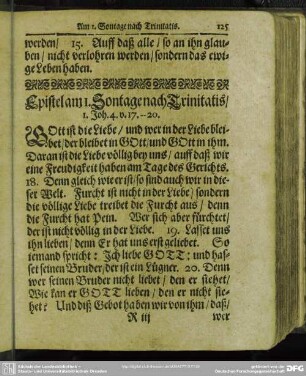 Am 1. Sontage nach Trinitatis. 125
werden/ 15. Auff daß alle/ so an ihn glau-
ben/ nicht verlohren werden/ sondern das ewi-
ge Leben haben.
Epistel am 1. Sontage nach Trinitatis/
1. Joh. 4. v. 17.--20.
GOtt ist die Liebe/ und wer in der Liebe blei-
bet/ der bleibet in GOtt/ und GOtt in ihm.
Daran ist die Liebe völlig bey uns/ auff daß wir
eine Freudigkeit haben am Tage des Gerichts.
18. Denn gleich wie er ist/ so sind auch wir in die-
ser Welt. Furcht ist nicht in der Liebe/ sondern
die völlige Liebe treibet die Furcht aus/ denn
die Furcht hat Pein. Wer sich aber fürchtet/
der ist nicht völlig in der Liebe. 19. Lasset uns
ihn lieben/ denn Er hat uns erst geliebet. So
iemand spricht: Ich liebe GOTT: und has-
set seinen Bruder/ der ist ein Lügner. 20. Denn
wer seinen Bruder nicht liebet/ den er siehet/
Wie kan er GOTT lieben/ den er nicht sie-
het? Und diß Gebot haben wir von ihm/ daß/
R iij wer